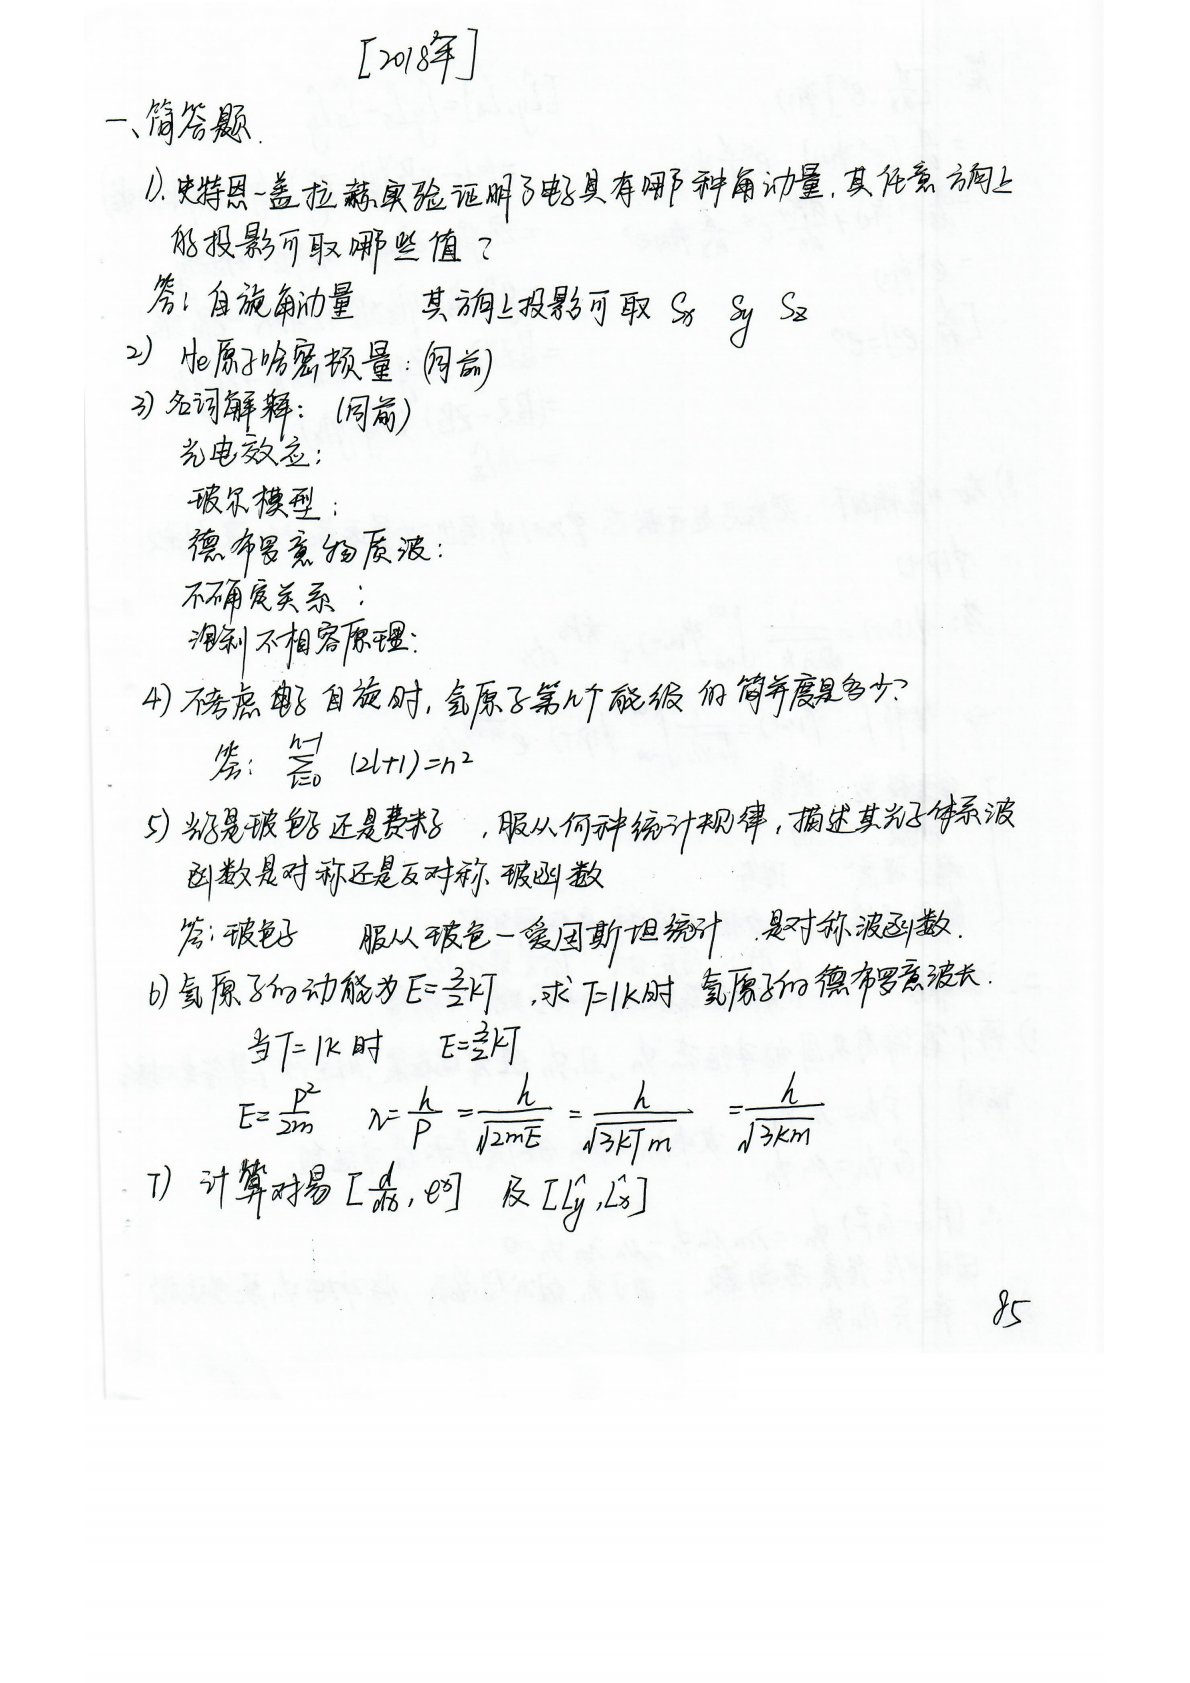 [2018年]
一、简答题.
1). 史特恩-盖拉赫实验证明了电子具有哪种角动量,其任意方向上
的投影可取哪些值?
答: 自旋角动量 其方向上投影可取 Sx Sy Sz
2) He原子哈密顿量: (同前)
3) 名词解释: (同前)
光电效应:
玻尔模型:
德布罗意物质波:
不确定关系:
泡利不相容原理:
4) 不考虑电子自旋时, 氢原子第n个能级的简并度是多少?
答: \sum_{l=0}^{n-1} (2l+1)=n²
5) 光子是玻色子还是费米子 , 服从何种统计规律, 描述其光子体系波
函数是对称还是反对称、玻函数
答: 玻色子 服从玻色-爱因斯坦统计 . 是对称波函数.
6) 氢原子的动能为E=3/2kT , 求T=1K时 氢原子的德布罗意波长.
当T=1K时 E=3/2kT
E=P²/2m λ=h/P =h/√2mE =h/√3kTm =h/√3km
7) 计算对易[d/dx, eˣ] 及[L̂y, L̂x]
85